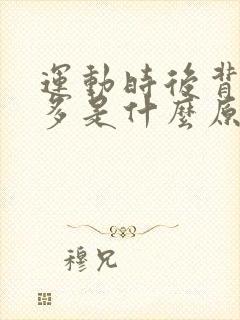 運動時後背
多是什麼原
穆兄